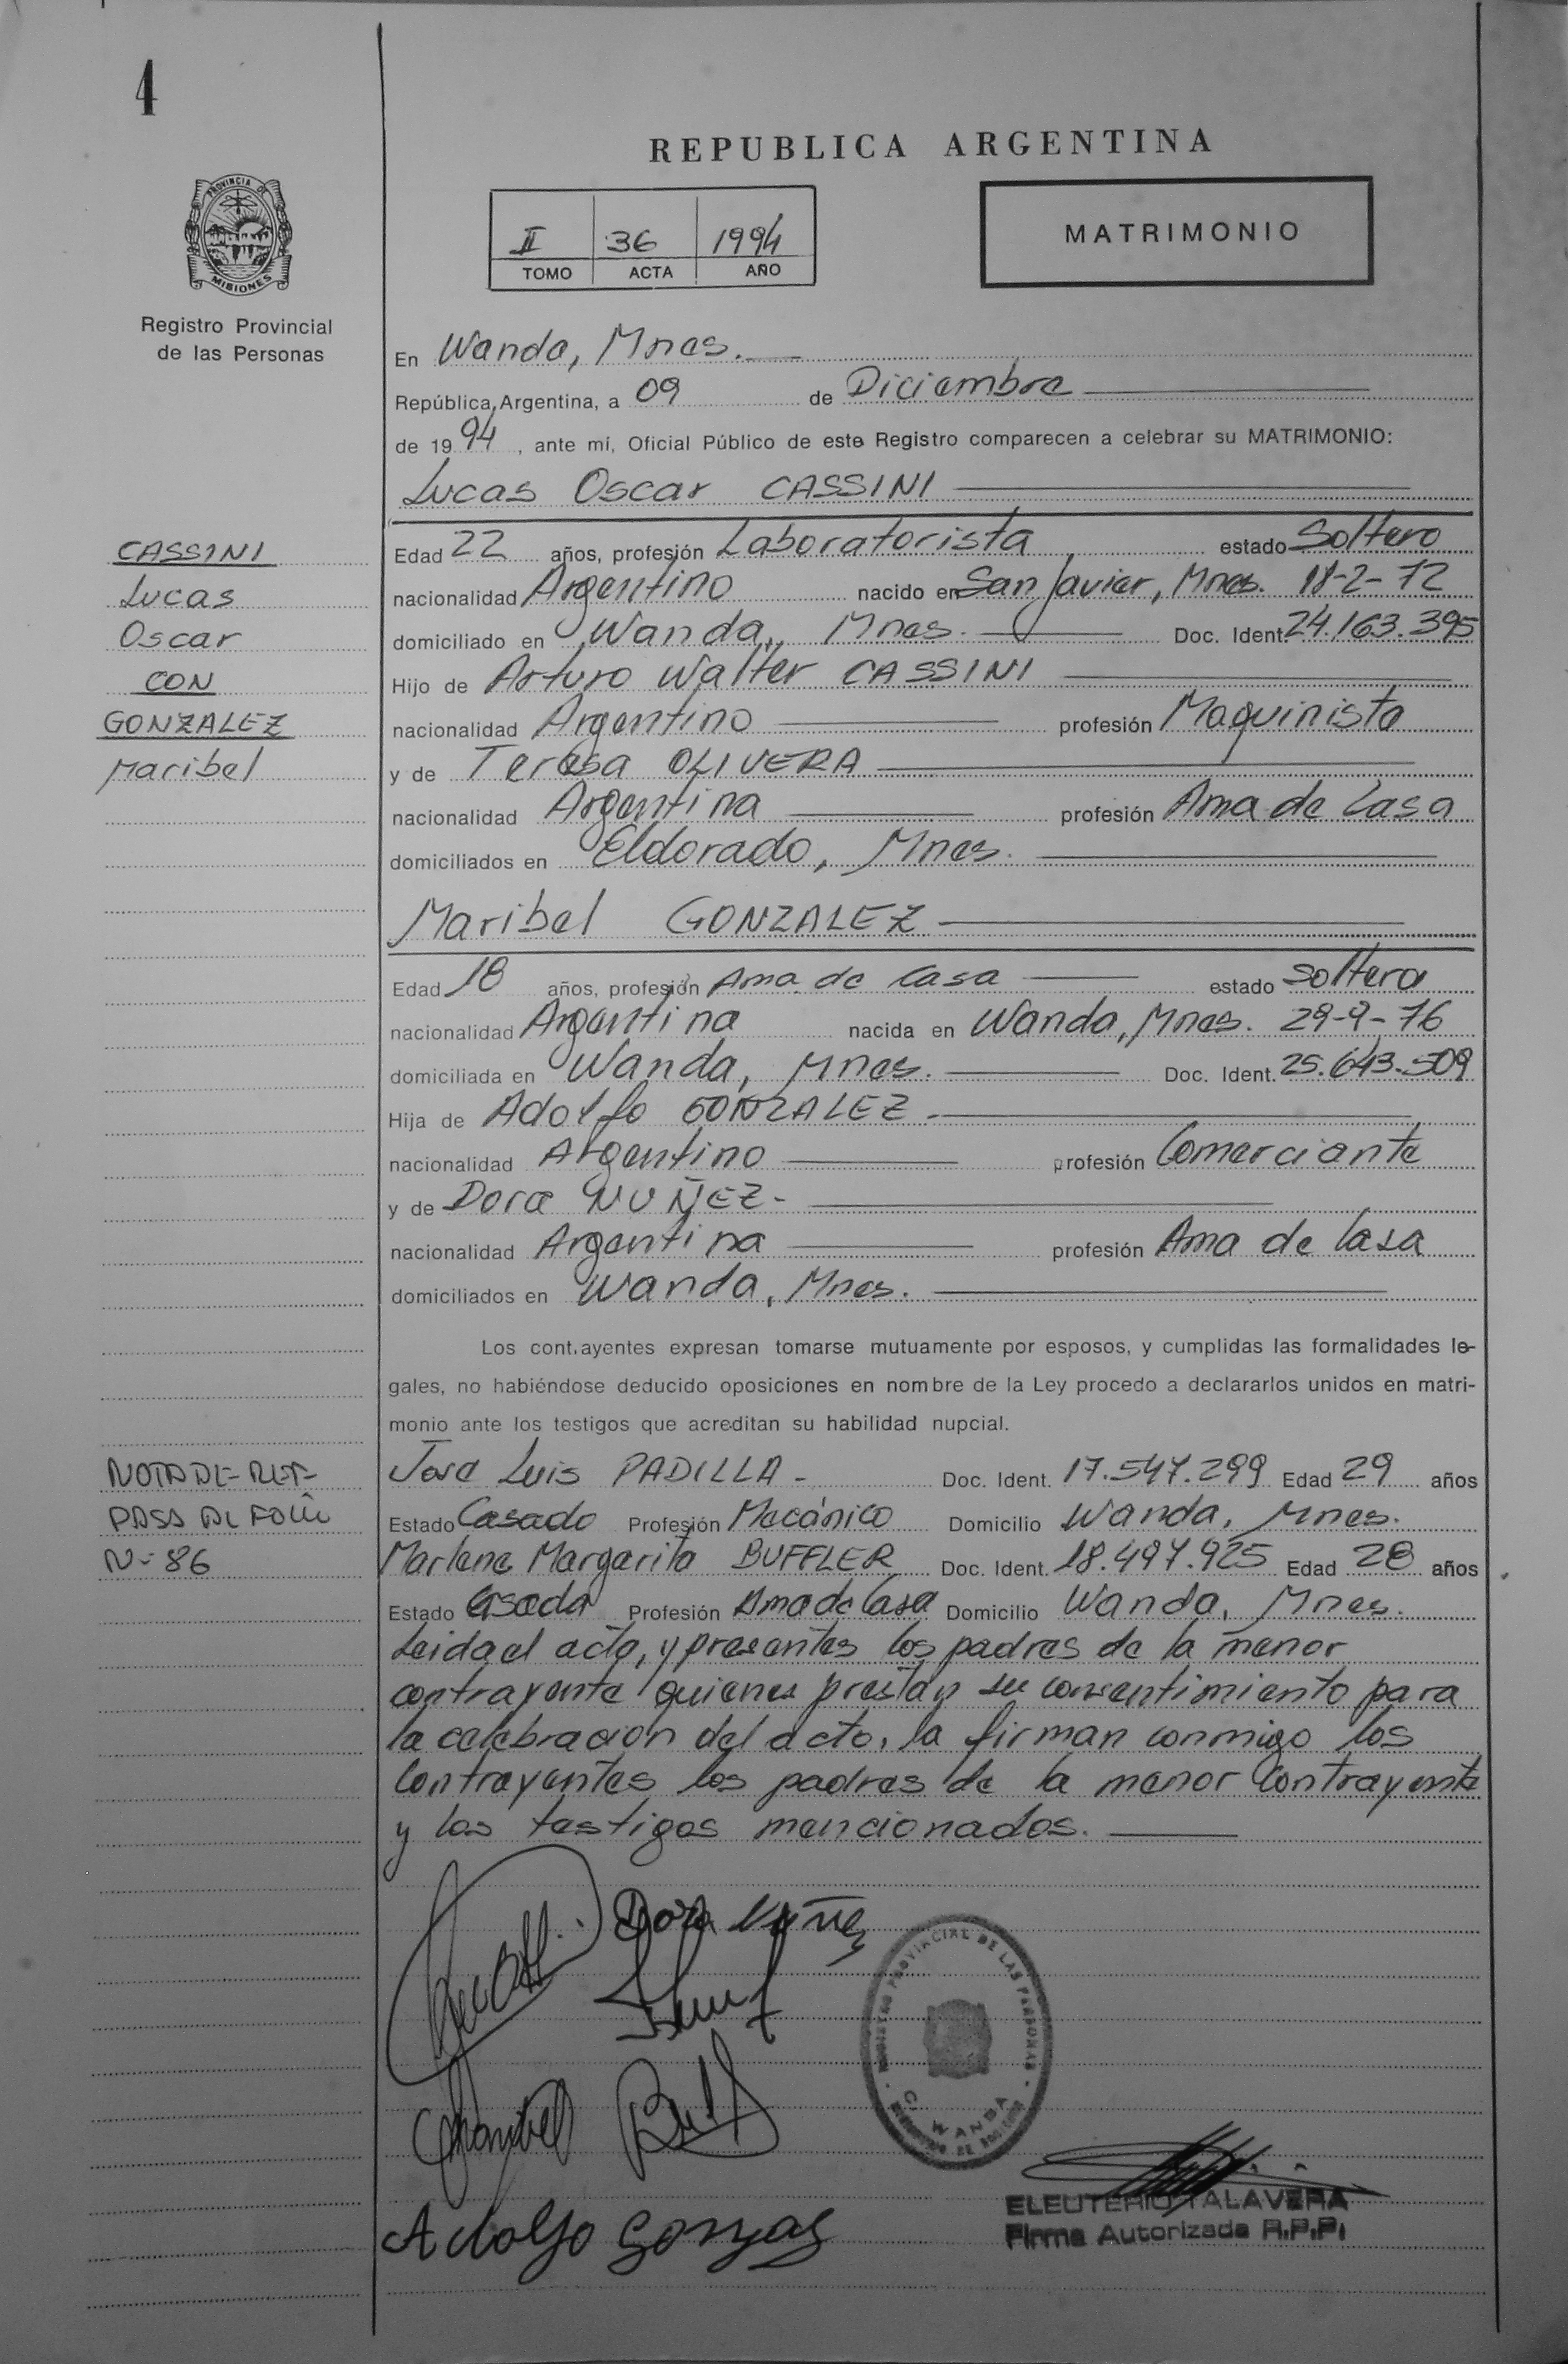 4
REPUBLICA ARGENTINA
PROVINCIA DE
MISIONES
Registro Provincial
de las Personas
II 36 1994
TOMO ACTA AÑO
MATRIMONIO
En Wanda, Mnes.
República Argentina, a 09 de Diciembre
de 1994, ante mí, Oficial Público de este Registro comparecen a celebrar su MATRIMONIO:
Lucas Oscar CASSINI
CASSINI
Lucas
Oscar
CON
GONZALEZ
Maribel
Edad 22 años, profesión Laboratorista estado Soltero
nacionalidad Argentino nacido en San Javier, Mnes. 18-2-72
domiciliado en Wanda, Mnes. Doc. Ident. 24.163.395
Hijo de Arturo Walter CASSINI
nacionalidad Argentino profesión Maquinista
y de Teresa OLIVERA
nacionalidad Argentina profesión Ama de Casa
domiciliados en Eldorado, Mnes.
Maribel GONZALEZ
Edad 18 años, profesión Ama de Casa estado Soltera
nacionalidad Argentina nacida en Wanda, Mnes. 29-9-76
domiciliada en Wanda, Mnes. Doc. Ident. 25.643.509
Hija de Adolfo GONZALEZ.
nacionalidad Argentino profesión Comerciante
y de Dora NUÑEZ-
nacionalidad Argentina profesión Ama de Casa
domiciliados en Wanda, Mnes.
Los cont.ayentes expresan tomarse mutuamente por esposos, y cumplidas las formalidades le-
gales, no habiéndose deducido oposiciones en nombre de la Ley procedo a declararlos unidos en matri-
monio ante los testigos que acreditan su habilidad nupcial.
NOTA DE REF-
PASA AL FOLIO
N-86
José Luis PADILLA- Doc. Ident. 17.547.299 Edad 29 años
Estado Casado Profesión Mecánico Domicilio Wanda, Mnes.
Marlene Margarita BUFFLER Doc. Ident. 18.497.925 Edad 28 años
Estado Casada Profesión Ama de Casa Domicilio Wanda, Mnes.
Leida el acta, y presentes los padres de la menor
contrayente quienes prestan su consentimiento para
la celebracion del acto, la firman conmigo los
Contrayentes los padres de la menor Contrayente
y los testigos mencionados.
Dora Nuñez
REGISTRO PROVINCIAL DE LAS PERSONAS
WANDA
Adolfo Gonzalez
ELEUTERIO TALAVERA
Firma Autorizada R.P.P.